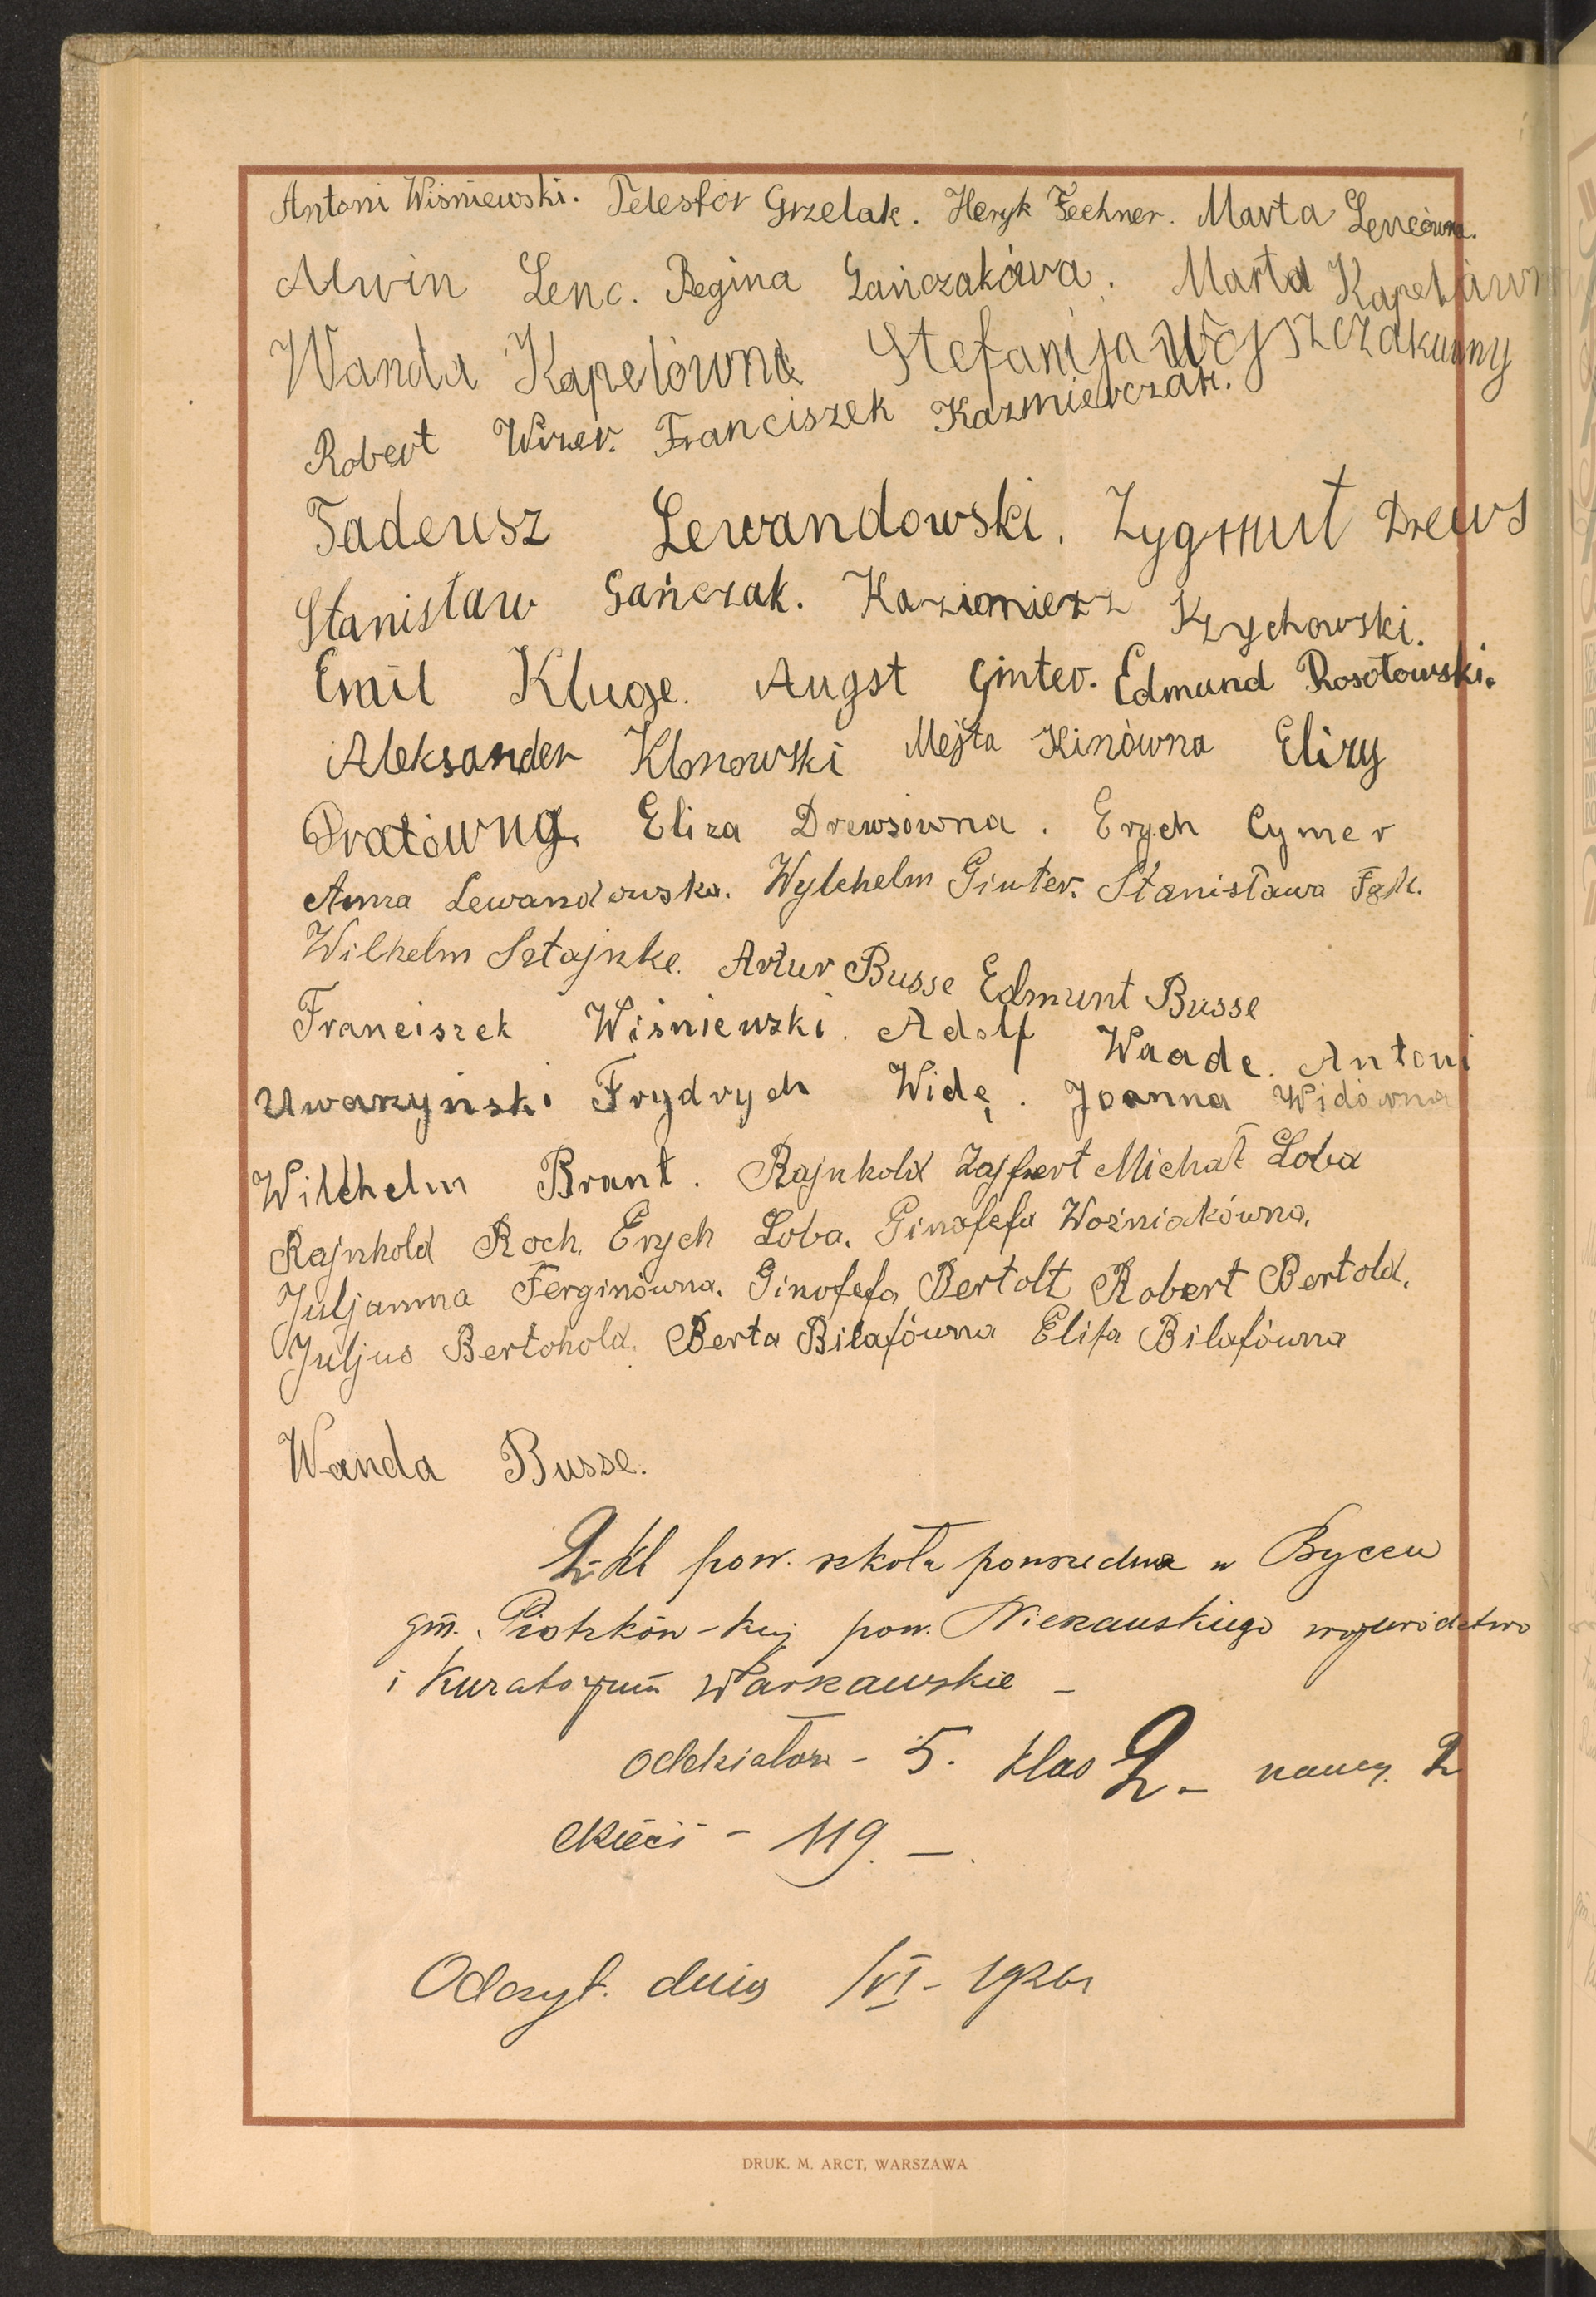 Antoni Wiśniewski. Telesfór Grzelak. Heryk Fechner. Marta Lencówna.
Alwin Lenc. Regina Gańczakówa. Marta Kapelówn
Wanda Kapelówna Stefanija
Robert Wizer. Franciszek Kazmierczak.
Tadeusz Lewandowski. Zygmut Drews
Stanisław Gańczak. Kazimierz Krzychowski.
Emil Kluge. Augst Ginter. Edmund Rosołowski.
Aleksander Klonowski Mejta Kinówna Elizy
Pratówng. Eliza Drewsówna. Erych Cymer
Anna Lewandowska. Wylchelm Ginter. Stanisława
Wilhelm Sztajnke. Artur Busse Edmunt Busse
Franciszek Wiśniewski. Adolf Waade. Antoni
Uwarzyński Frydrych Widę. Joanna Widówna
Wilchelm Brant. Rajnhold Zajfert Michał Loba
Rajnhold Roch. Erych Loba. Ginofefa Woźniakówna.
Juljanna Ferginówna. Ginofefa Bertolt Robert Bertold.
Juljus Bertohold. Berta Bilafówna Elifa Bilafówna
Wanda Busse.
2-kl pow. szkoła powszechna w Byczu
gm. Piotrków-Kuj pow. Nieszawskiego województwo
i Kuratorjum Warszawskie –
oddziałów – 5. klas 2 – naucz. 2
dzieci – 119. –
Odczyt. dnia 1/VI – 1926r
DRUK. M. ARCT, WARSZAWA